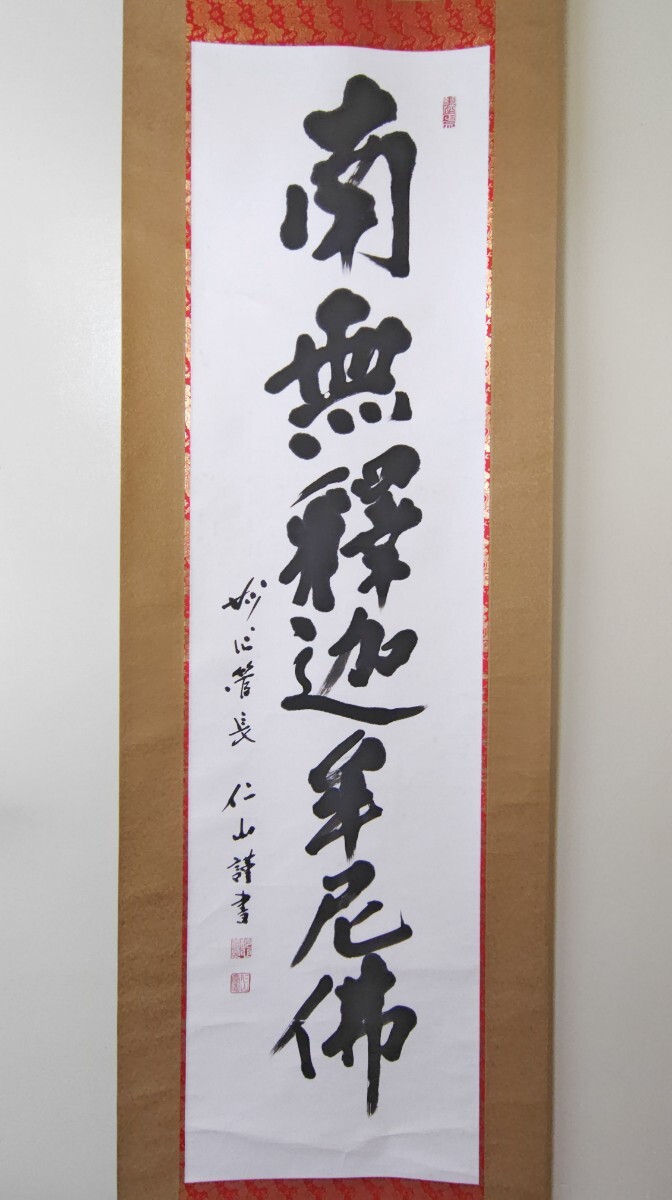 南無釋迦牟尼佛
妙心管長 仁山謹書